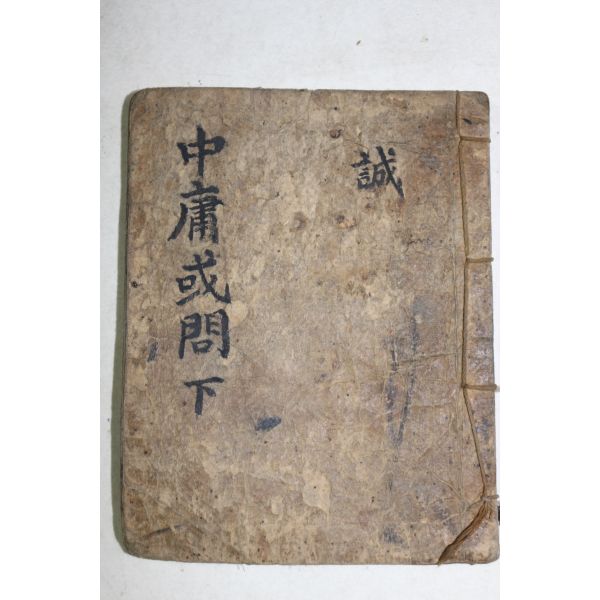 誠
中庸或問 下